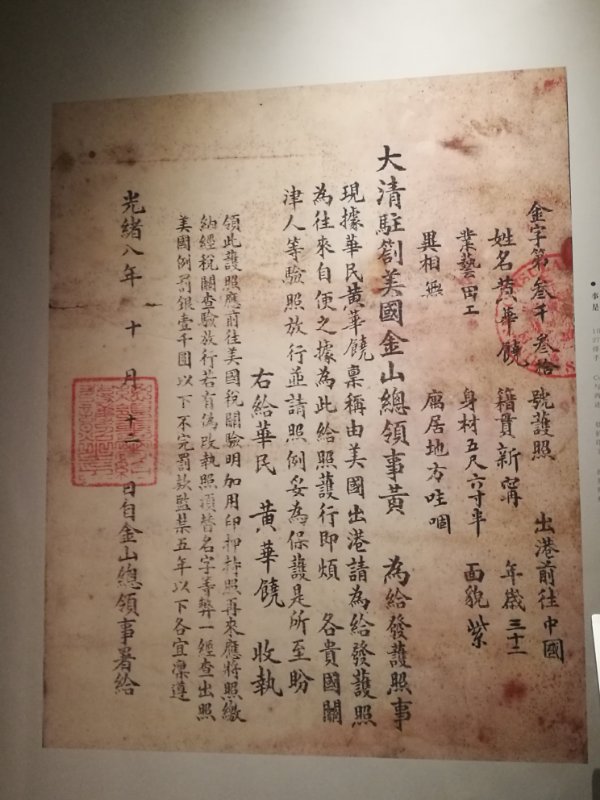 金字第叁千叁拾 號護照 出港前往中國
姓名黃華饒 籍貫新甯 年歲三十二
業藝田工 身材五尺六寸半 面貌紫
異相無 寓居地方哇
大清駐劄美國金山總領事黃 為給發護照事
現據華民黃華饒稟稱由美國出港請為給發護照
為往來自便之據為此給照護行即煩 各貴國關
津人等驗照放行並請照例妥為保護是所至盼
右給華民 黃華饒 收執
領此護照應前往美國稅關驗明加用印押持照再來應將照繳
納經稅關查驗放行若有偽改執照頂替名字等弊一經查出照
美國例罰銀壹千圓以下不完罰款監禁五年以下各宜凜遵
光緒八年 十 月 十二 日自金山總領事署給